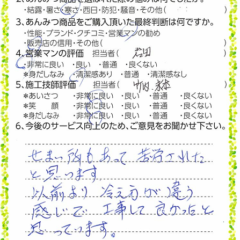 ・結露・暑さ寒さ・西日・防犯・騒音・その他(
3.あんみつ商品をご購入頂いた最終判断は何ですか。
・性能・ブランド・クチコミ・営業マンの勧め
・販売店の信用・その他(
4.営業マンの評価 担当者(
・非常に良い ・良い ・普通 ・良くない
*身だしなみ ・清潔感あり ・普通 ・清潔感なし
5.施工技師評価 担当者(
*あいさつ ・非常に良い ・良い ・普通 ・良くない
*笑 顔 ・非常に良い ・良い ・普通 ・良くない
*身だしなみ ・非常に良い ・良い ・普通 ・良くない
6.今後のサービス向上のため、ご意見をお聞かせ下さい。
せまい所もあって苦労された
と思います
以前より冷え方が違う
感じで工事して良かったと
思っています。